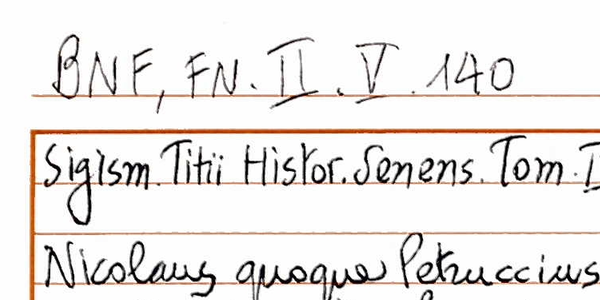 BNF, FN. II. V. 140
Sigism. Titii Histor. Senens. Tom. I
Nicolaus quoque Petruccius